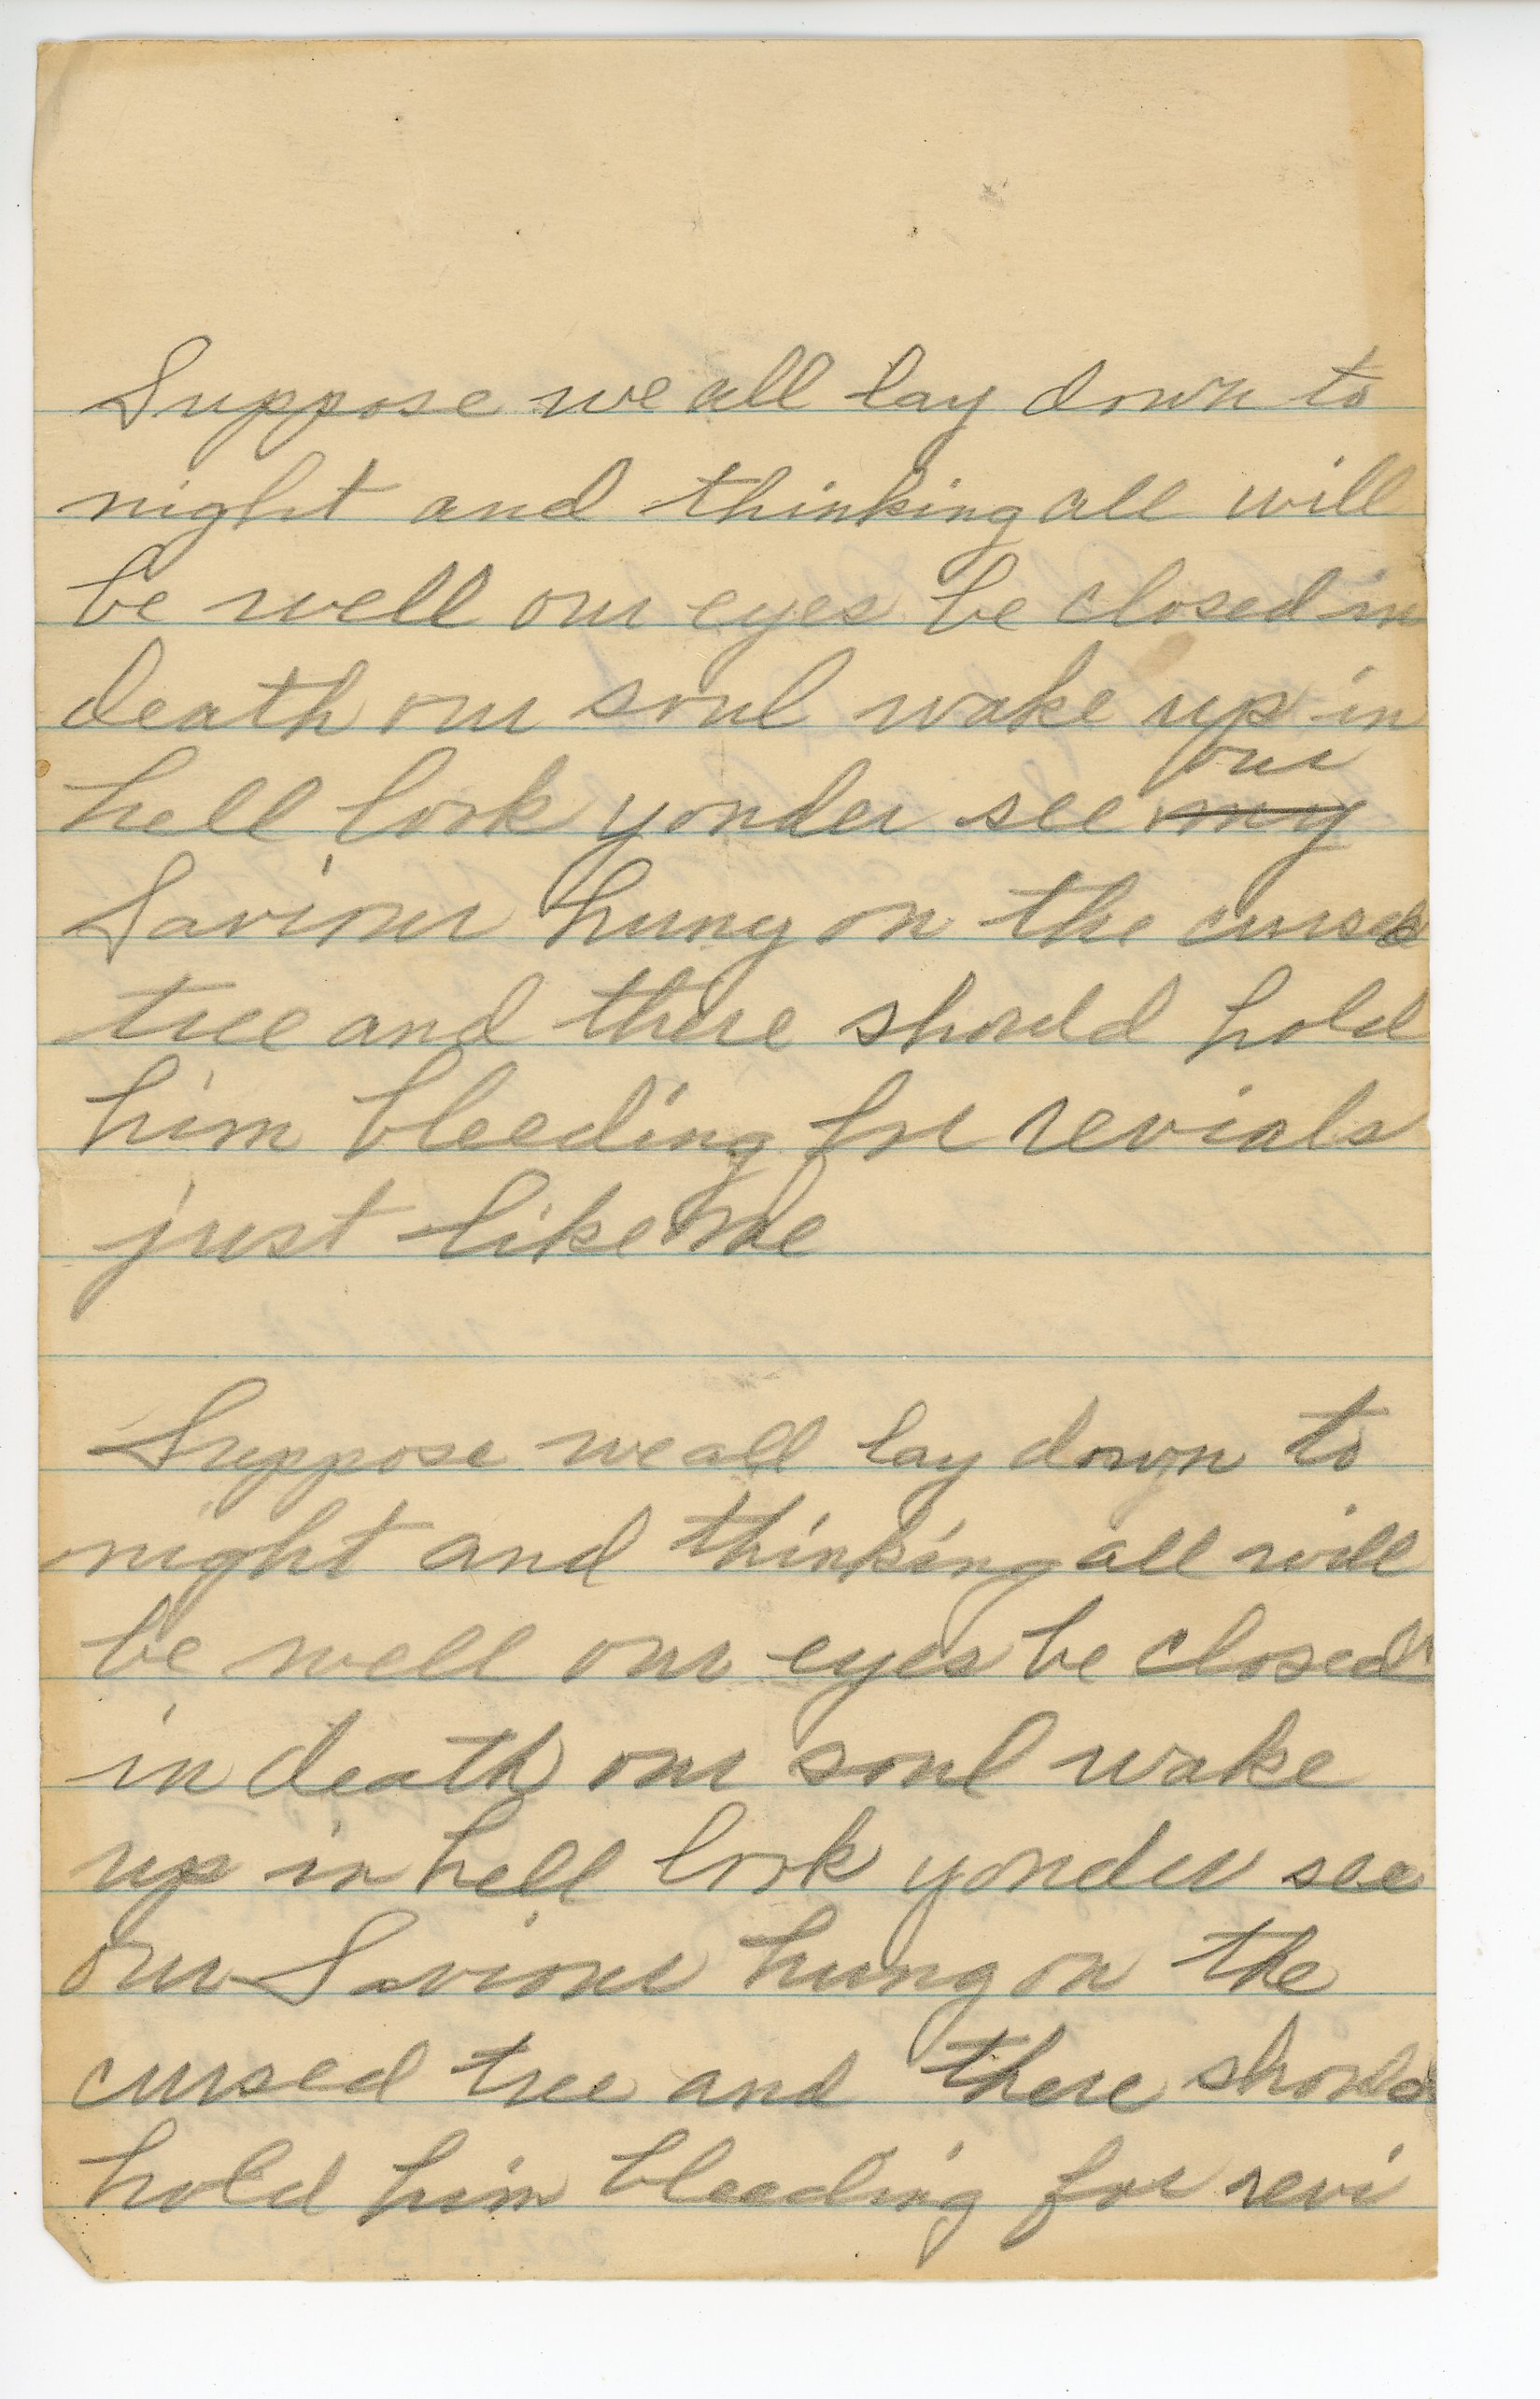 Suppose we all lay down to
night and thinking all will
be well our eyes be closed in
death our soul wake up in
our
hell look yonder see my
Saviour hung on the cursed
tree and there should hold
him bleeding for revials
just like me
Suppose we all lay down to
night and thinking all will
be well our eyes be closed
in death our soul wake
up in hell look yonder see
our Saviour hung on the
cursed tree and there should
hold him bleeding for revi